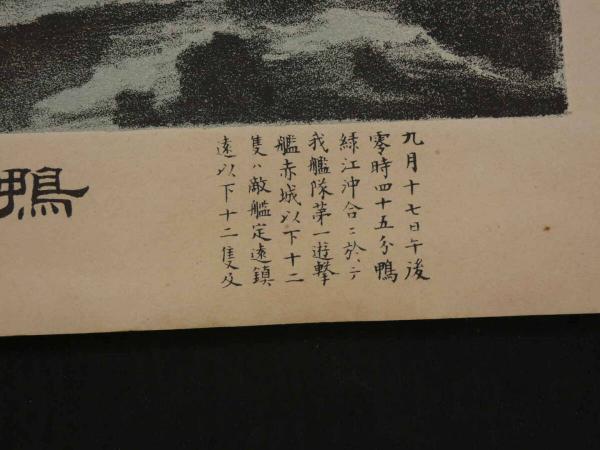 九月十七日午後
零時四十五分鴨
緑江沖合ニ於テ
我艦隊第一遊撃
艦赤城以下十二
隻ハ敵艦定遠鎮
遠以下十二隻及
鴨